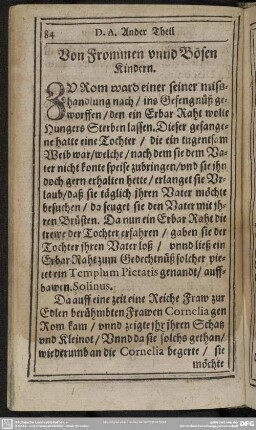 84 D. A. Ander Theil
Von Frommen vnnd Bösen
Kindern.
ZV Rom ward einer seiner miß-
handlung nach / ins Gefengnüß ge-
worffen / den ein Erbar Raht wolte
Hungers Sterben lassen. Dieser gefange-
ne hatte eine Tochter / die ein tugentsam
Weib war / welche / nach dem sie dem Va-
ter nicht konte speise zubringen / vnd sie jhn
doch gern erhalten hette / erlanget sie Vr-
laub / daß sie täglich jhren Vater möchte
besuchen / da seuget sie den Vater mit jh-
ren Brüsten. Da nun ein Erbar Raht die
trewe der Tochter erfahren / gaben sie der
Tochter jhren Vater loß / vnnd ließ ein
Erbar Raht zum Gedechtnüß solcher pie-
tet ein Templum Pietatis genandt / auff-
bawen. Solinus.
Da auff eine zeit eine Reiche Fraw zur
Edlen berühmbten Frawen Cornelia gen
Rom kam / vnnd zeigte jhr jhren Schatz
vnd Kleinot / Vnnd da sie solchs gethan /
wiederumb an die Cornelia begerte / sie
möchte